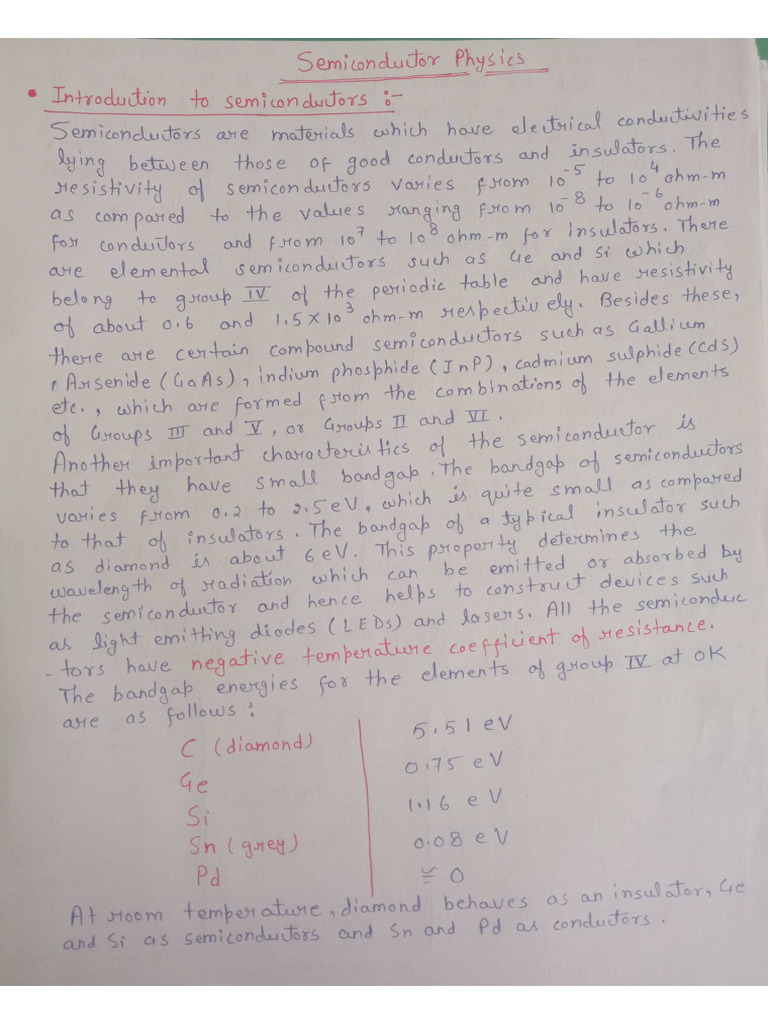 Semiconductor Physics
• Introduction to semiconductors :-
Semiconductors are materials which have electrical conductivities
lying between those of good conductors and insulators. The
resistivity of semiconductors varies from 10⁻⁵ to 10⁴ ohm-m
as compared to the values ranging from 10⁻⁸ to 10⁻⁶ ohm-m
for conductors and from 10⁷ to 10⁸ ohm-m for insulators. There
are elemental semiconductors such as Ge and Si which
belong to group IV of the periodic table and have resistivity
of about 0.6 and 1.5×10³ ohm-m respectively. Besides these,
there are certain compound semiconductors such as Gallium
Arsenide (GaAs), indium phosphide (InP), cadmium sulphide (CdS)
etc., which are formed from the combinations of the elements
of Groups III and V, or Groups II and VI.
Another important characteristics of the semiconductor is
that they have small bandgap. The bandgap of semiconductors
varies from 0.2 to 2.5eV, which is quite small as compared
to that of insulators. The bandgap of a typical insulator such
as diamond is about 6eV. This property determines the
wavelength of radiation which can be emitted or absorbed by
the semiconductor and hence helps to construct devices such
as light emitting diodes (LEDs) and lasers. All the semiconduc
-tors have negative temperature coefficient of resistance.
The bandgap energies for the elements of group IV at 0K
are as follows:
C (diamond) 5.51 eV
Ge 0.75 eV
Si 1.16 eV
Sn (grey) 0.08 eV
Pd ≅ 0
At room temperature, diamond behaves as an insulator, Ge
and Si as semiconductors and Sn and Pd as conductors.